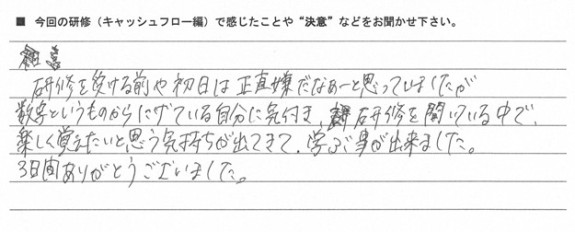 ■ 今回の研修（キャッシュフロー編）で感じたことや“決意”などをお聞かせ下さい。
研修を受ける前や初日は正直嫌だなぁーと思ってしましたが
数字というものからにげている自分に気付き、研修を聞いている中で、
楽しく覚えたいと思う気持ちが出てきて、学ぶ事が出来ました。
3日間ありがとうございました。